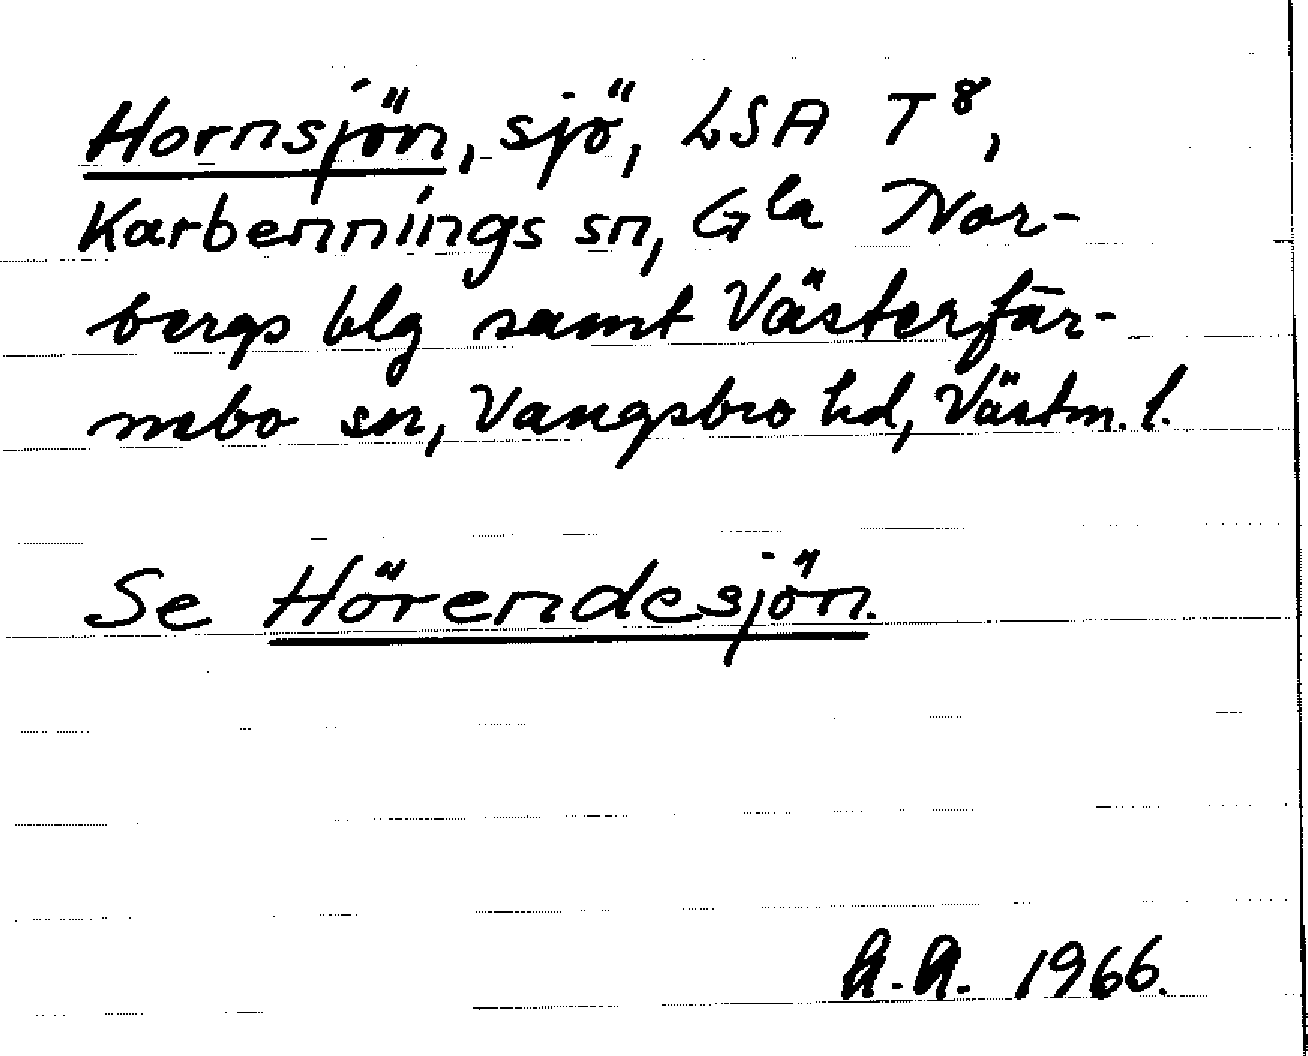 Hornsjön, sjö, LSA T⁸,
Karbennings sn, Gla Nor-
bergs blg samt Västerfär-
nebo sn, Vangsbro hd, Västm. l.
Se Hörendesjön.
A.A. 1966.